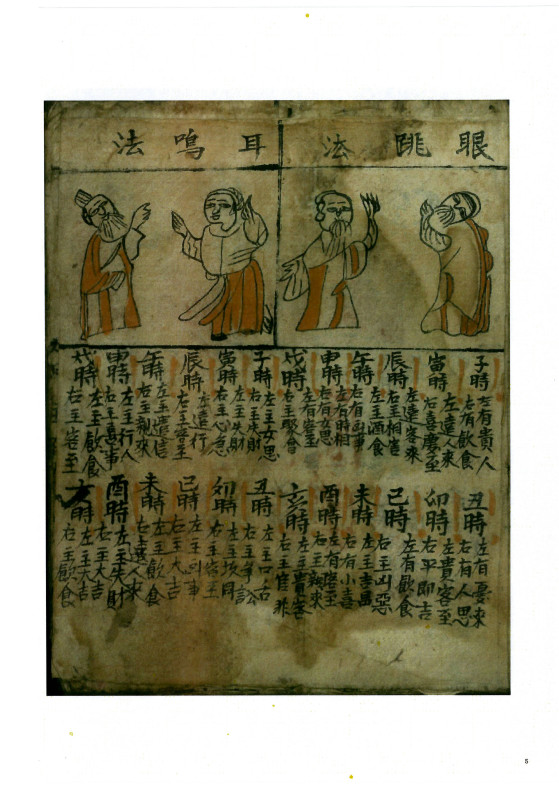 眼跳法
子時 左有貴人
右有飲食
寅時 左遠人來
右喜慶至
辰時 左遠客來
右主相害
午時 左主酒食
右有凶事
申時 左有時相
右有女思
戌時 左有客至
右主聚會
丑時 左有憂來
右有人思
卯時 左貴客至
右平即吉
巳時 左有飲食
右主凶惡
未時 左主吉昌
右有小喜
酉時 左有至
右主親來
亥時 左主貴客
右主官非
耳鳴法
子時 左主女思
右主失財
寅時 左主失財
右主心急
辰時 左遠行
右主客至
午時 左主遠信
右主親來
申時 左主行人
右主喜事
戌時 左主飲食
右主客至
丑時 左主口舌
右主爭訟
卯時 左主
右客主
巳時 左主凶事
右主大吉
未時 左主飲食
右遠人來
酉時 左主失財
右主大吉
亥時 左主大吉
右主飲食
5